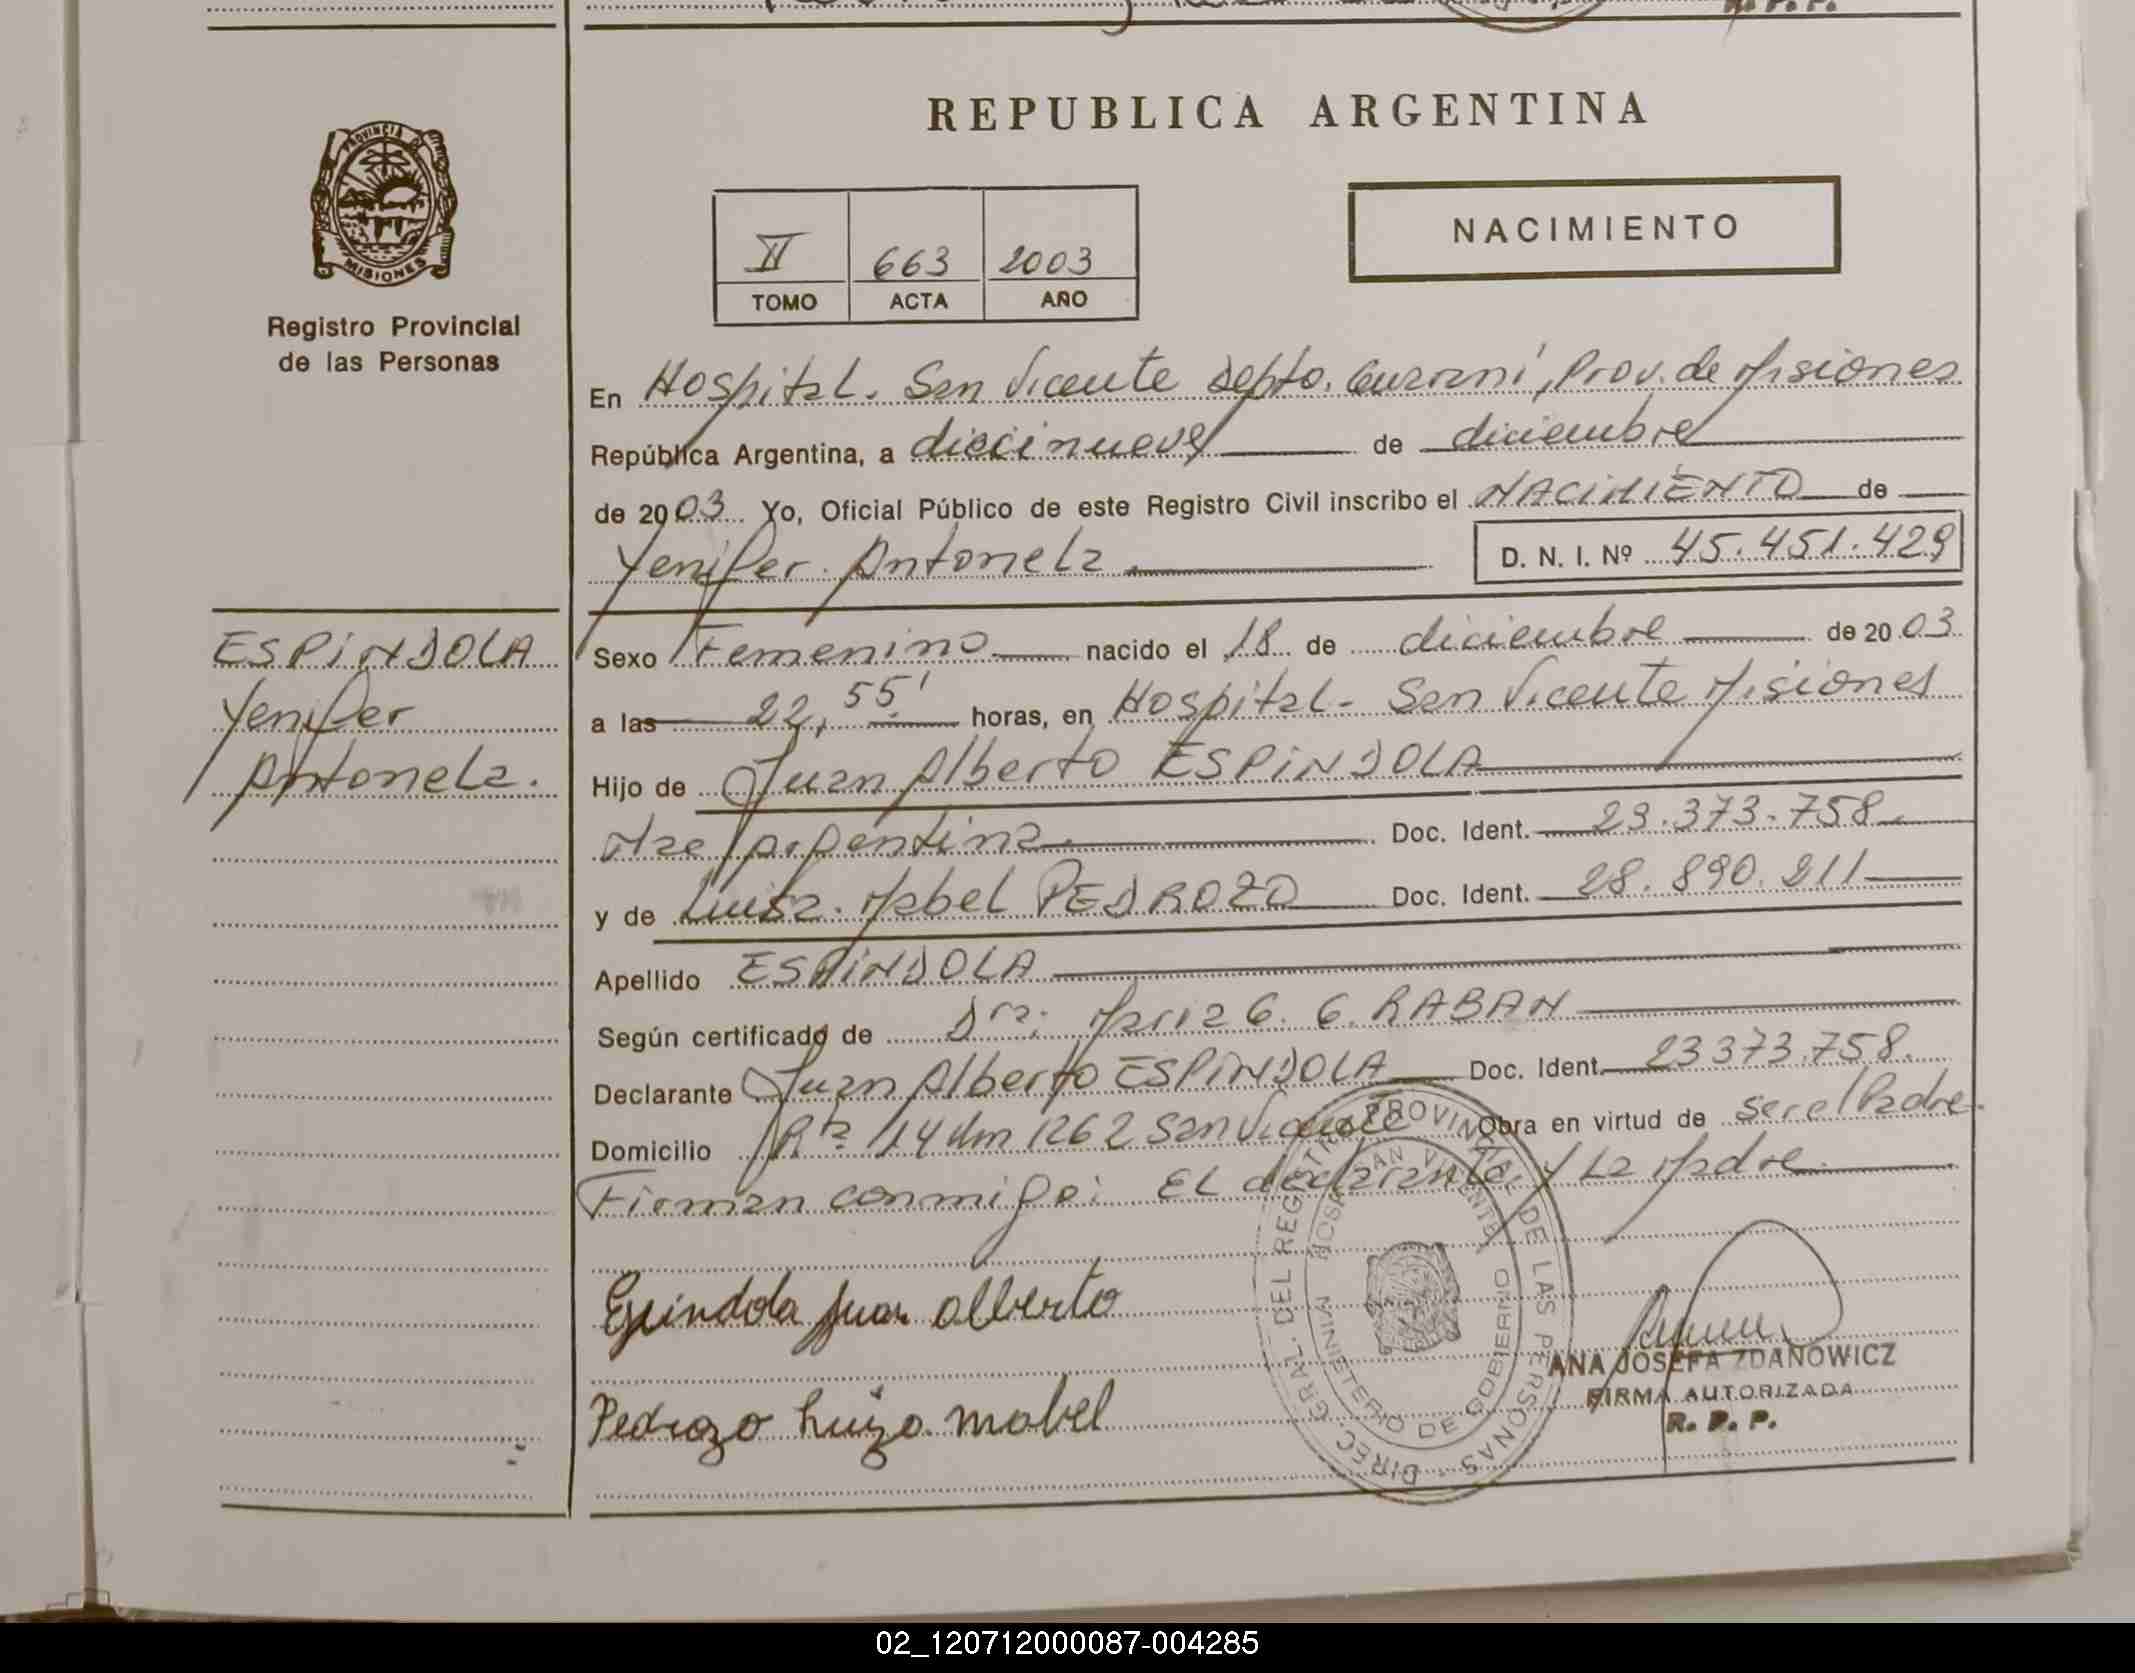 R. P. P.
PROVINCIA
MISIONES
Registro Provincial
de las Personas
REPUBLICA ARGENTINA
NACIMIENTO
II 663 2003
TOMO ACTA AÑO
En Hospital. San Vicente Depto. Guaraní, Prov. de Misiones
República Argentina, a diecinueve de diciembre
de 2003 Yo, Oficial Público de este Registro Civil inscribo el NACIMIENTO de
Yenifer Antonela D. N. I. Nº 45.451.429
ESPINDOLA
Yenifer
Antonela.
Sexo Femenino nacido el 18 de diciembre de 2003
a las 22, 55' horas, en Hospital - San Vicente Misiones
Hijo de Juan Alberto ESPINDOLA
Nac Argentina Doc. Ident. 23.373.758
y de Luisa Mabel PEDROZO Doc. Ident. 28.890.211
Apellido ESPINDOLA
Según certificado de Dra. Maria G. G. RABAN
Declarante Juan Alberto ESPINDOLA Doc. Ident. 23373.758.
Domicilio Rta 14 km 1262 San Vicente Obra en virtud de ser el Padre
Firman conmigo: El declarante y La Madre
Espindola Juan alberto
Pedrozo Luiza mabel
DIREC. GRAL. DEL REGISTRO PROVINCIAL DE LAS PERSONAS
HOSPITAL SAN VICENTE
MINISTERIO DE GOBIERNO
ANA JOSEFA ZDANOWICZ
FIRMA AUTORIZADA
R. P. P.
02_120712000087-004285